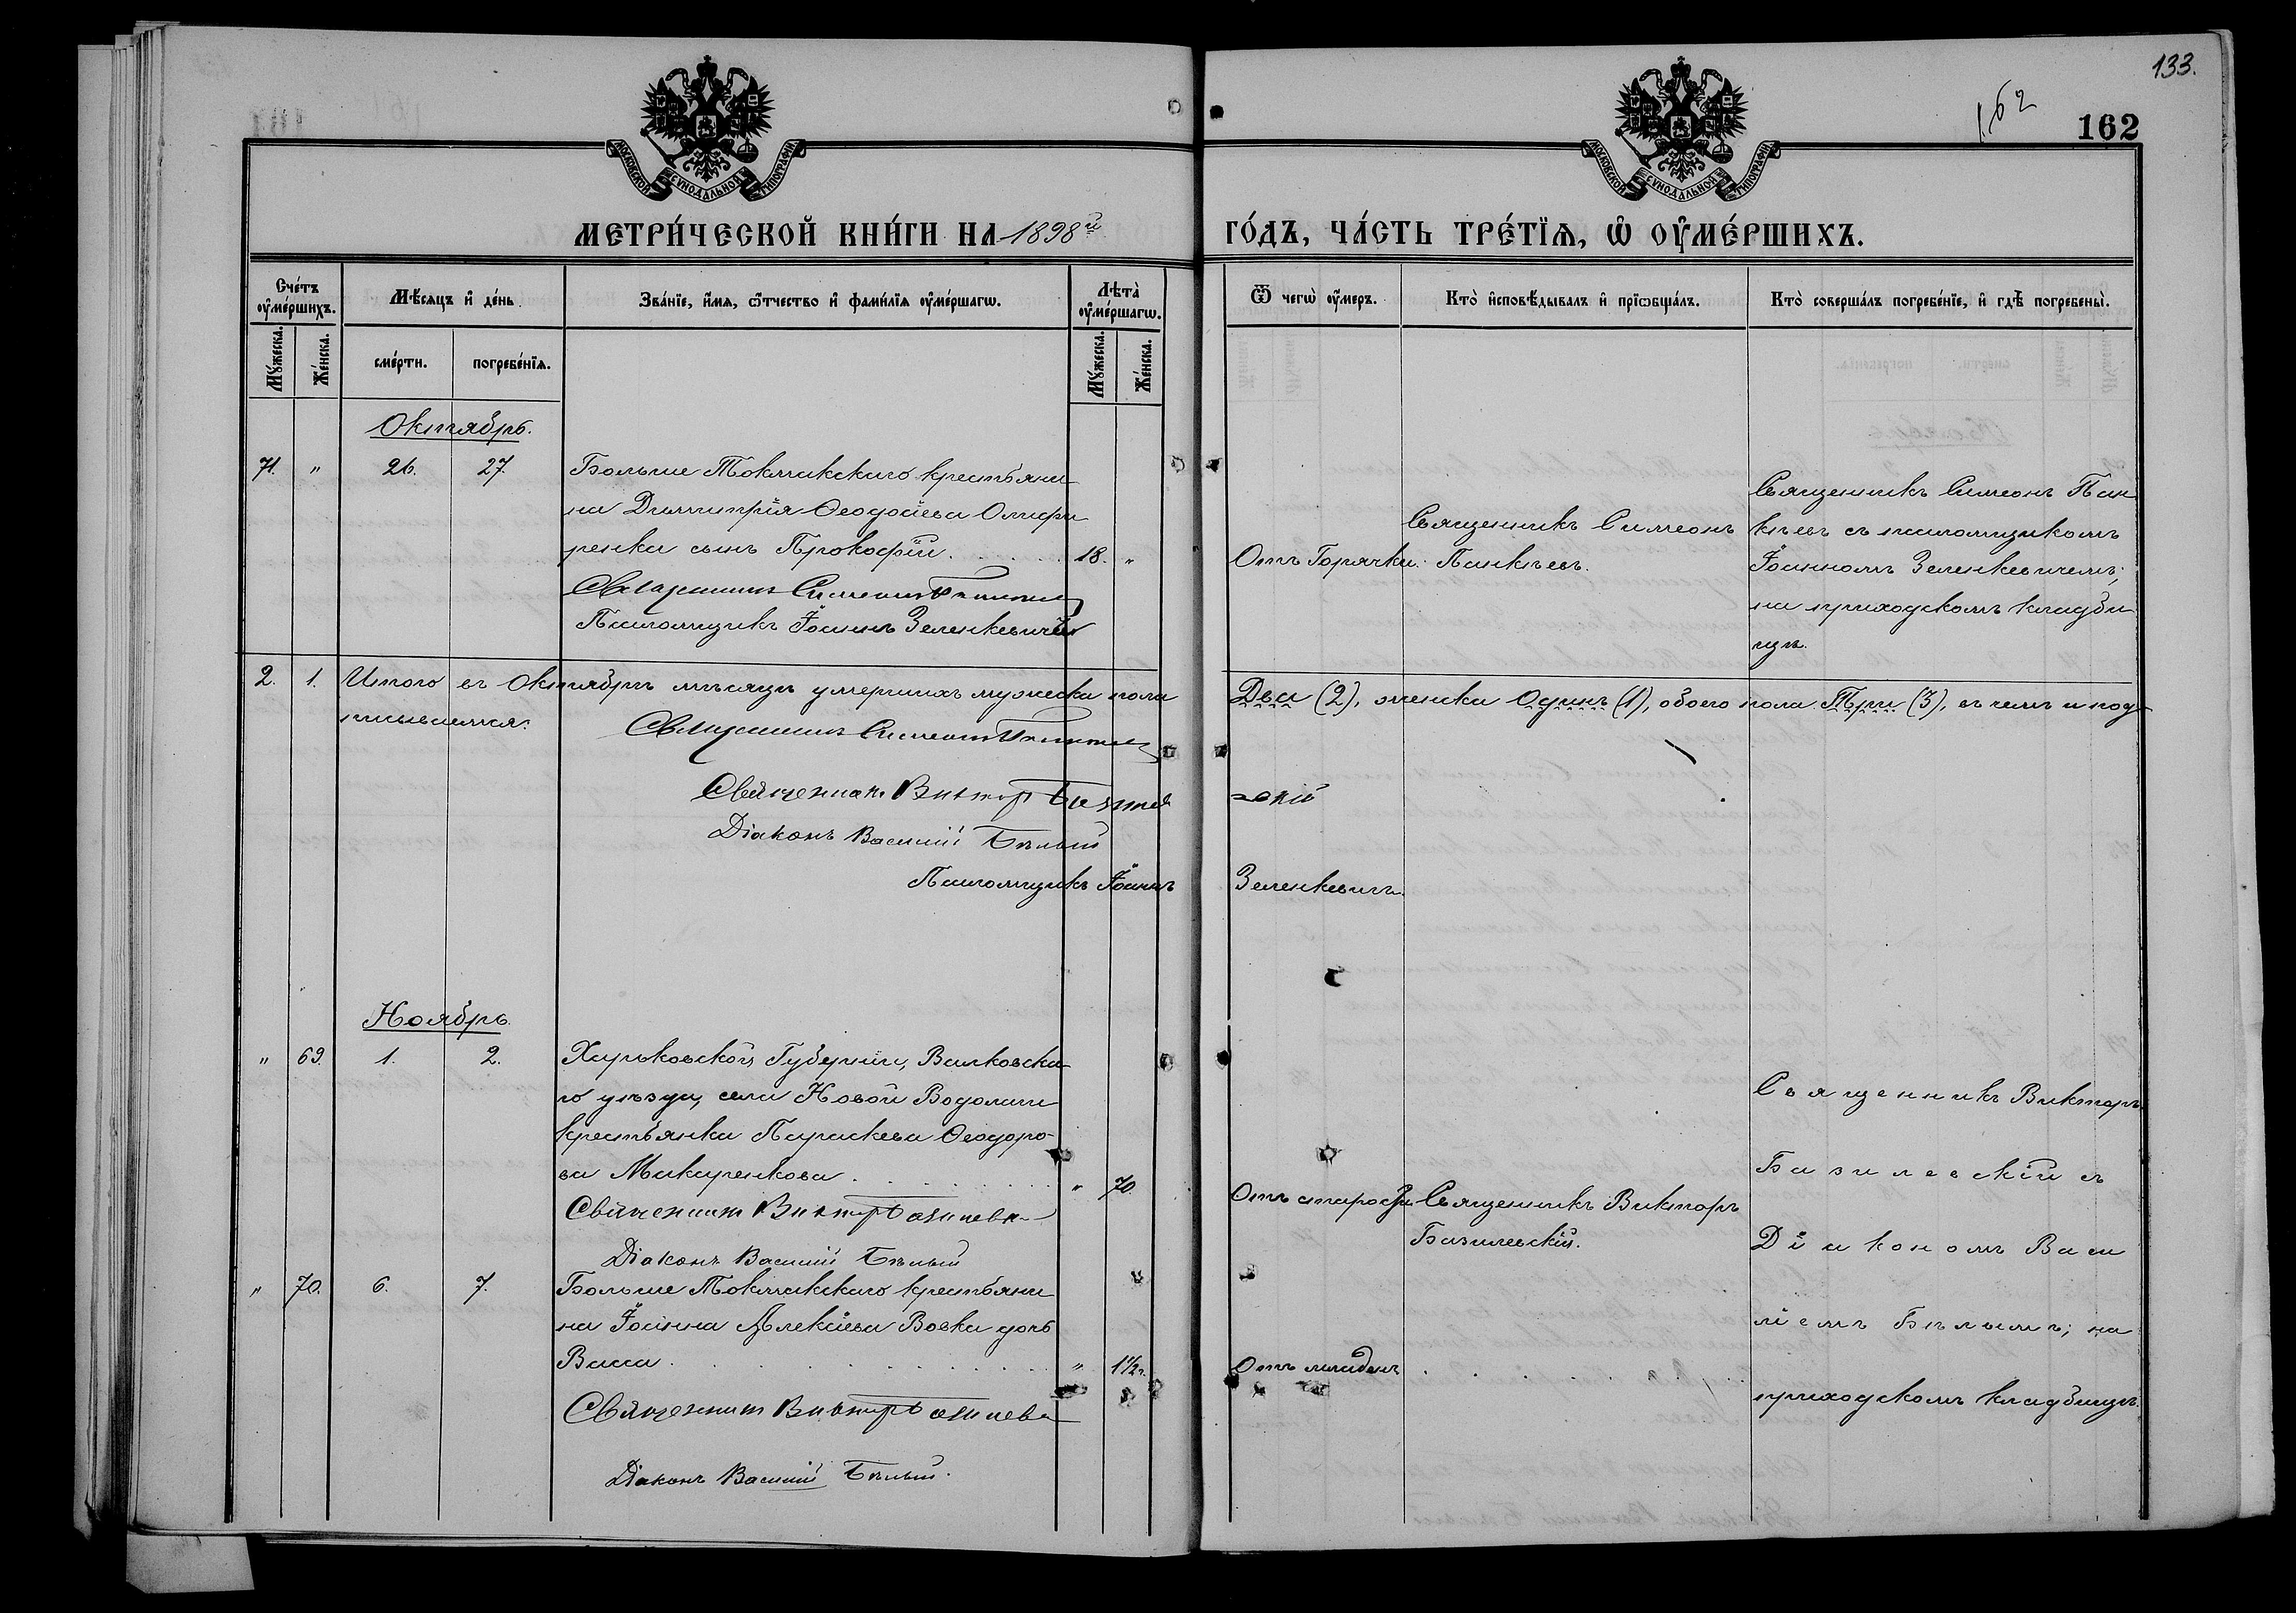 133.
162
162
МОСКОВСКОЙ СѴНОДАЛЬНОЙ ТИПОГРАФІИ
МОСКОВСКОЙ СѴНОДАЛЬНОЙ ТИПОГРАФІИ
МЕТРИ́ЧЕСКОЙ КНИ́ГИ НА 1898й
ГО́ДЪ, ЧА́СТЬ ТРЕ́ТЇѦ, Ѡ҆ ОУ҆МЕ́РШИХЪ.
Сче́тъ оу҆ме́ршихъ.
Мѣ́сяцъ и҆ де́нь
Зва́нїе, и҆́мя, ѻ҆́тчество и҆ фами́лїя оу҆ме́ршагѡ.
Лѣта̀ оу҆ме́ршагѡ.
Ѿ чегѡ̀ оу҆́меръ.
Кто̀ и҆сповѣ́дывалъ и҆ прїѡбща́лъ.
Кто̀ соверша́лъ погребе́нїе, и҆ гдѣ̀ погребены̀.
Мꙋ́жеска.
Же́нска.
сме́рти.
погребе́нїя.
Мꙋ́жеска.
Же́нска.
Октябрь.
71. " 26. 27. Больше Токмакскаго крестьяни
на Димитрія Ѳеодосіева
ренка сынъ Прокофій. 18. "
Священникъ Симеонъ
Псаломщикъ Іоаннъ Зеленкевичъ
Отъ Горячки.
Священникъ Симеонъ
Панкѣевъ.
Священникъ Симеонъ Пан
кѣевъ съ псаломщикомъ
Іоанномъ Зеленкевичемъ;
на приходскомъ кладби
щѣ.
2. 1. Итого въ Октябрѣ мѣсяцѣ умершихъ мужеска пола Два (2), женска Одинъ (1), обоего пола Три (3), въ чемъ и под
писываемся:
Священникъ Симеонъ
Священникъ Викторъ Базилевскій
Діаконъ Василій Бѣлый
Псаломщикъ Іоаннъ Зеленкевичъ.
Ноябрь.
" 69. 1. 2. Харьковской Губерніи, Валковска
го уѣзда, села Новой Водолаги
крестьянка Параскева Ѳеодоро-
ва Макаренкова. " 70.
Священникъ Викторъ Базилевск
Діаконъ Василій Бѣлый
Отъ старости.
Священникъ Викторъ
Базилевскій.
Священникъ Викторъ
Базилевскій съ
Діакономъ Васи
ліемъ Бѣлымъ; на
приходскомъ кладбищѣ.
" 70. 6. 7. Больше Токмакскаго крестьяни
на Іоанна Алексіева Вовка дочь
Васса. " 1½г.
Отъ младен.
Священникъ Викторъ Базилевск
Діаконъ Василій Бѣлый.